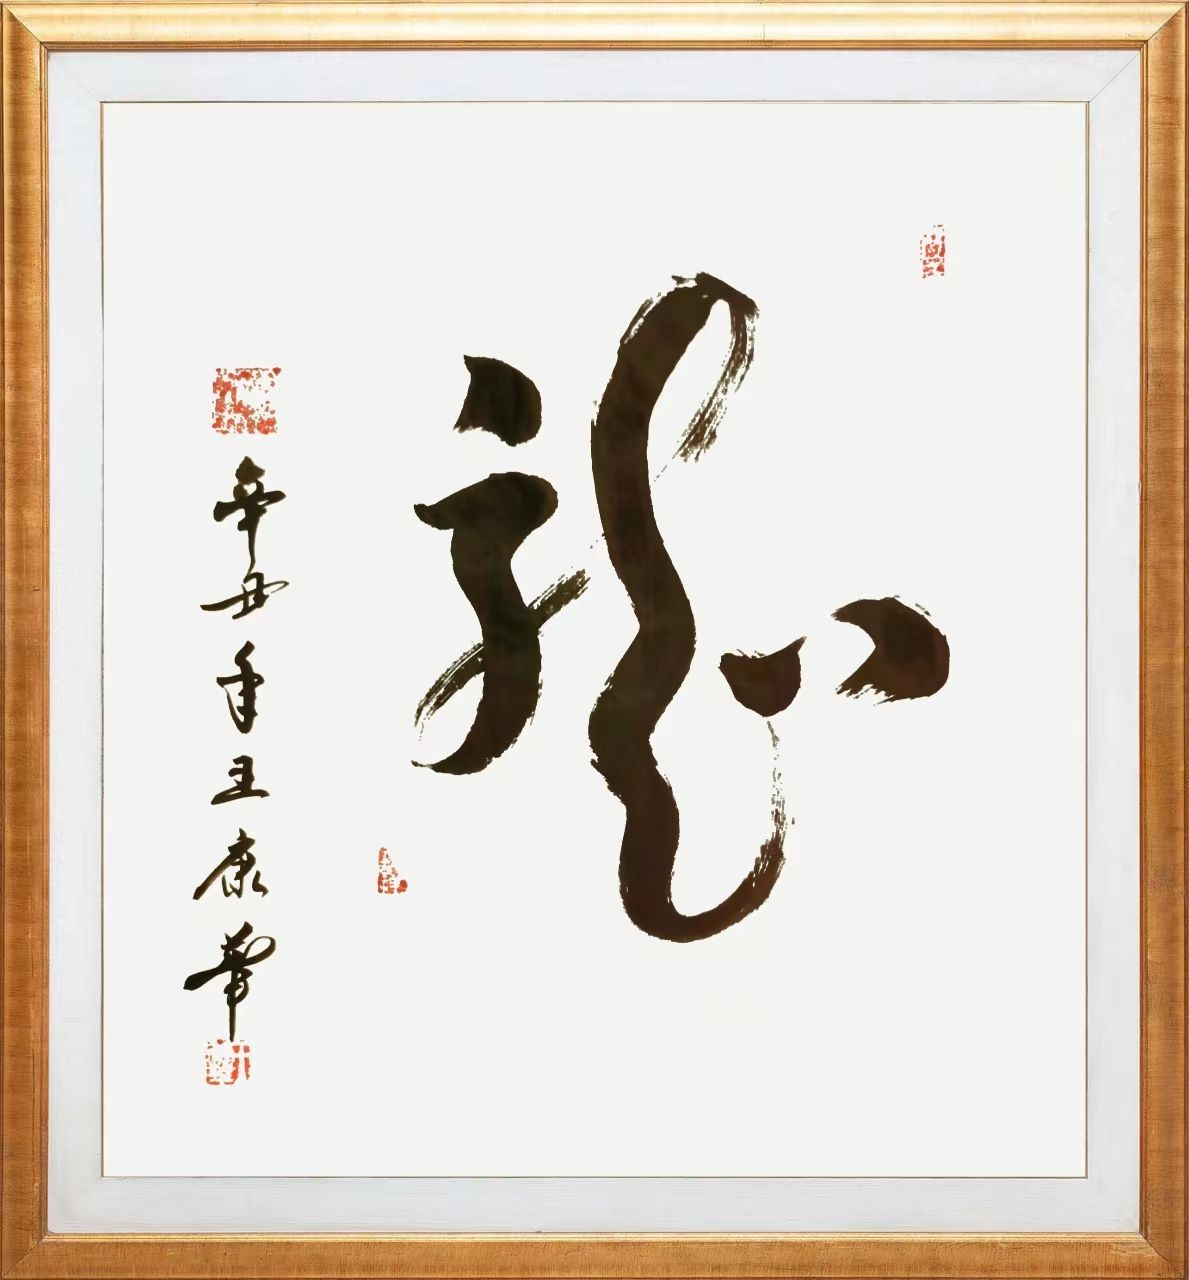 龍
辛丑年王康筆